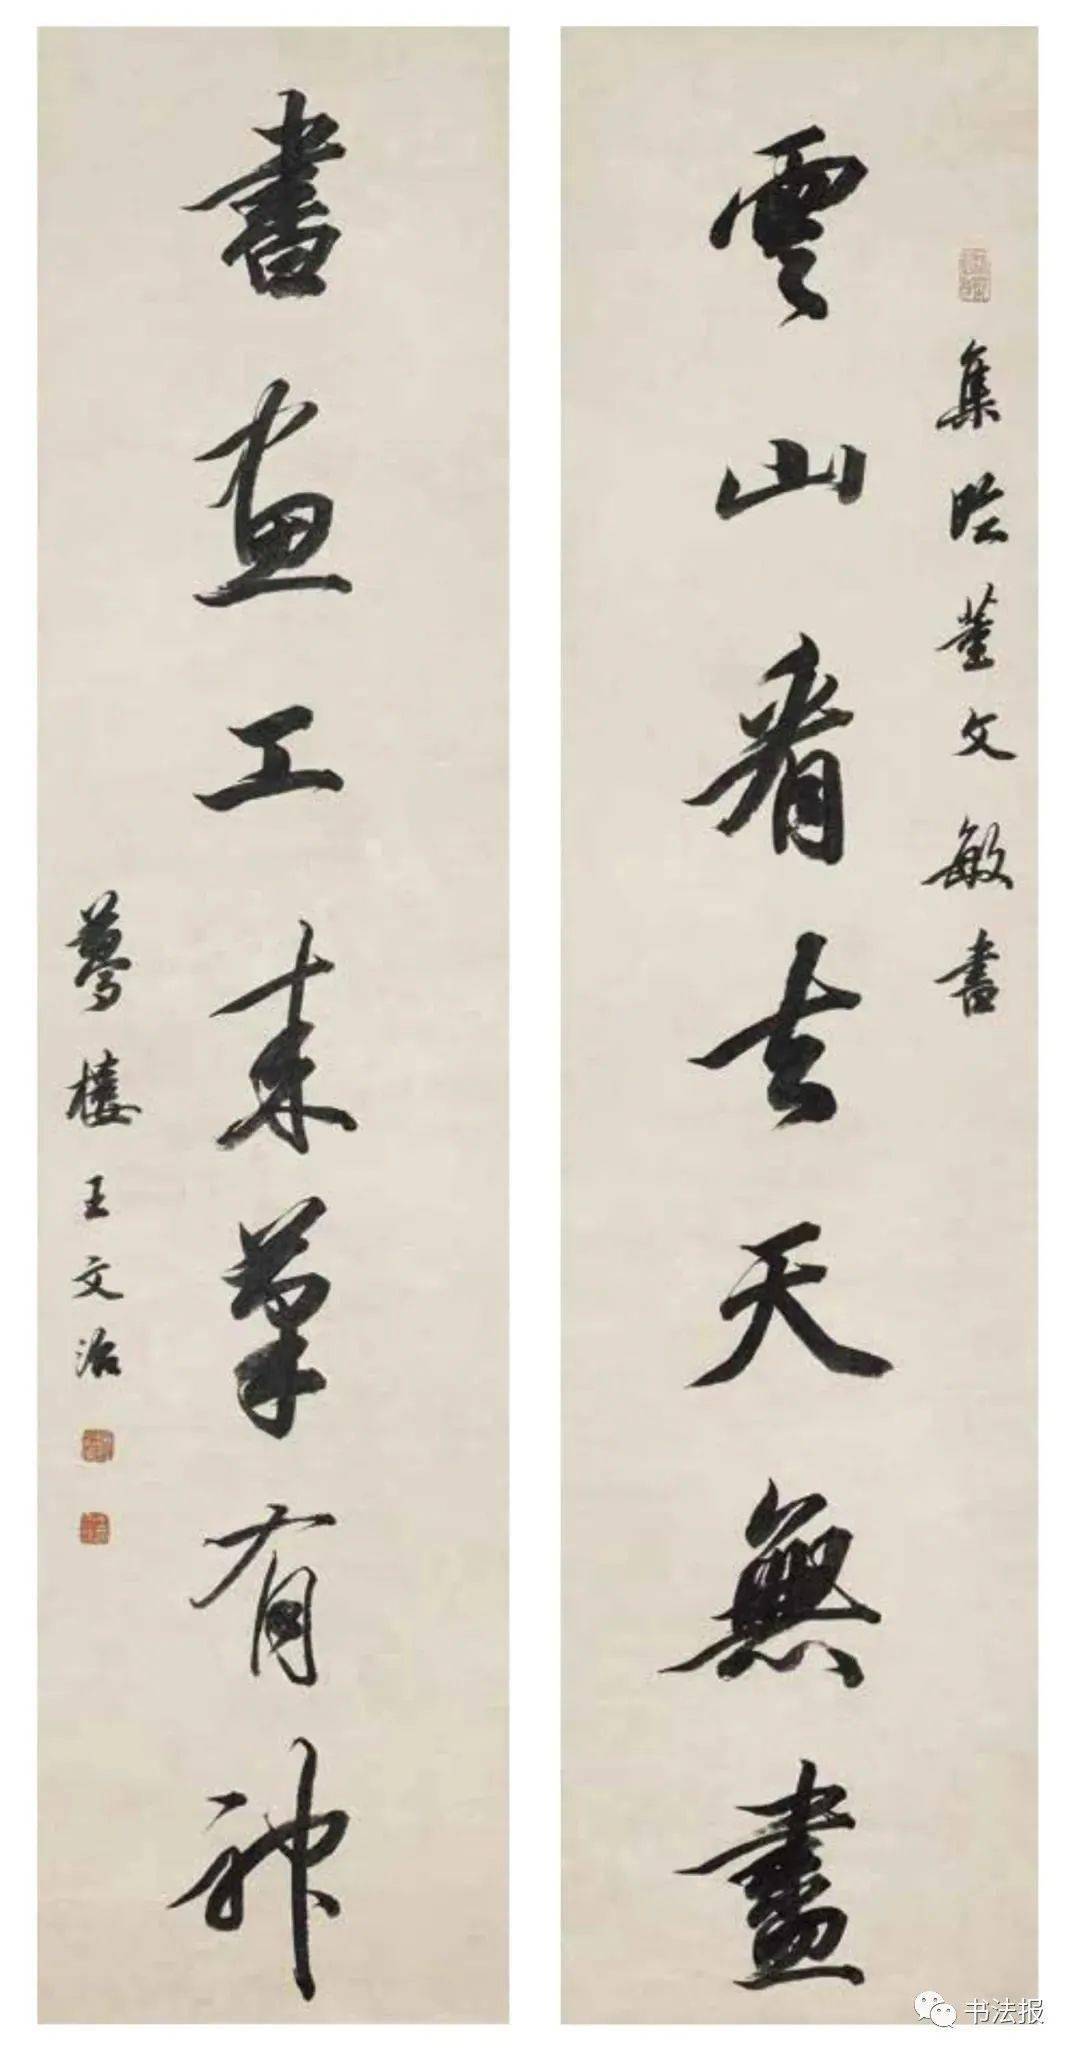 集臨董文敏書
雲山看去天無盡
書畫工来筆有神
夢樓王文治
书法报